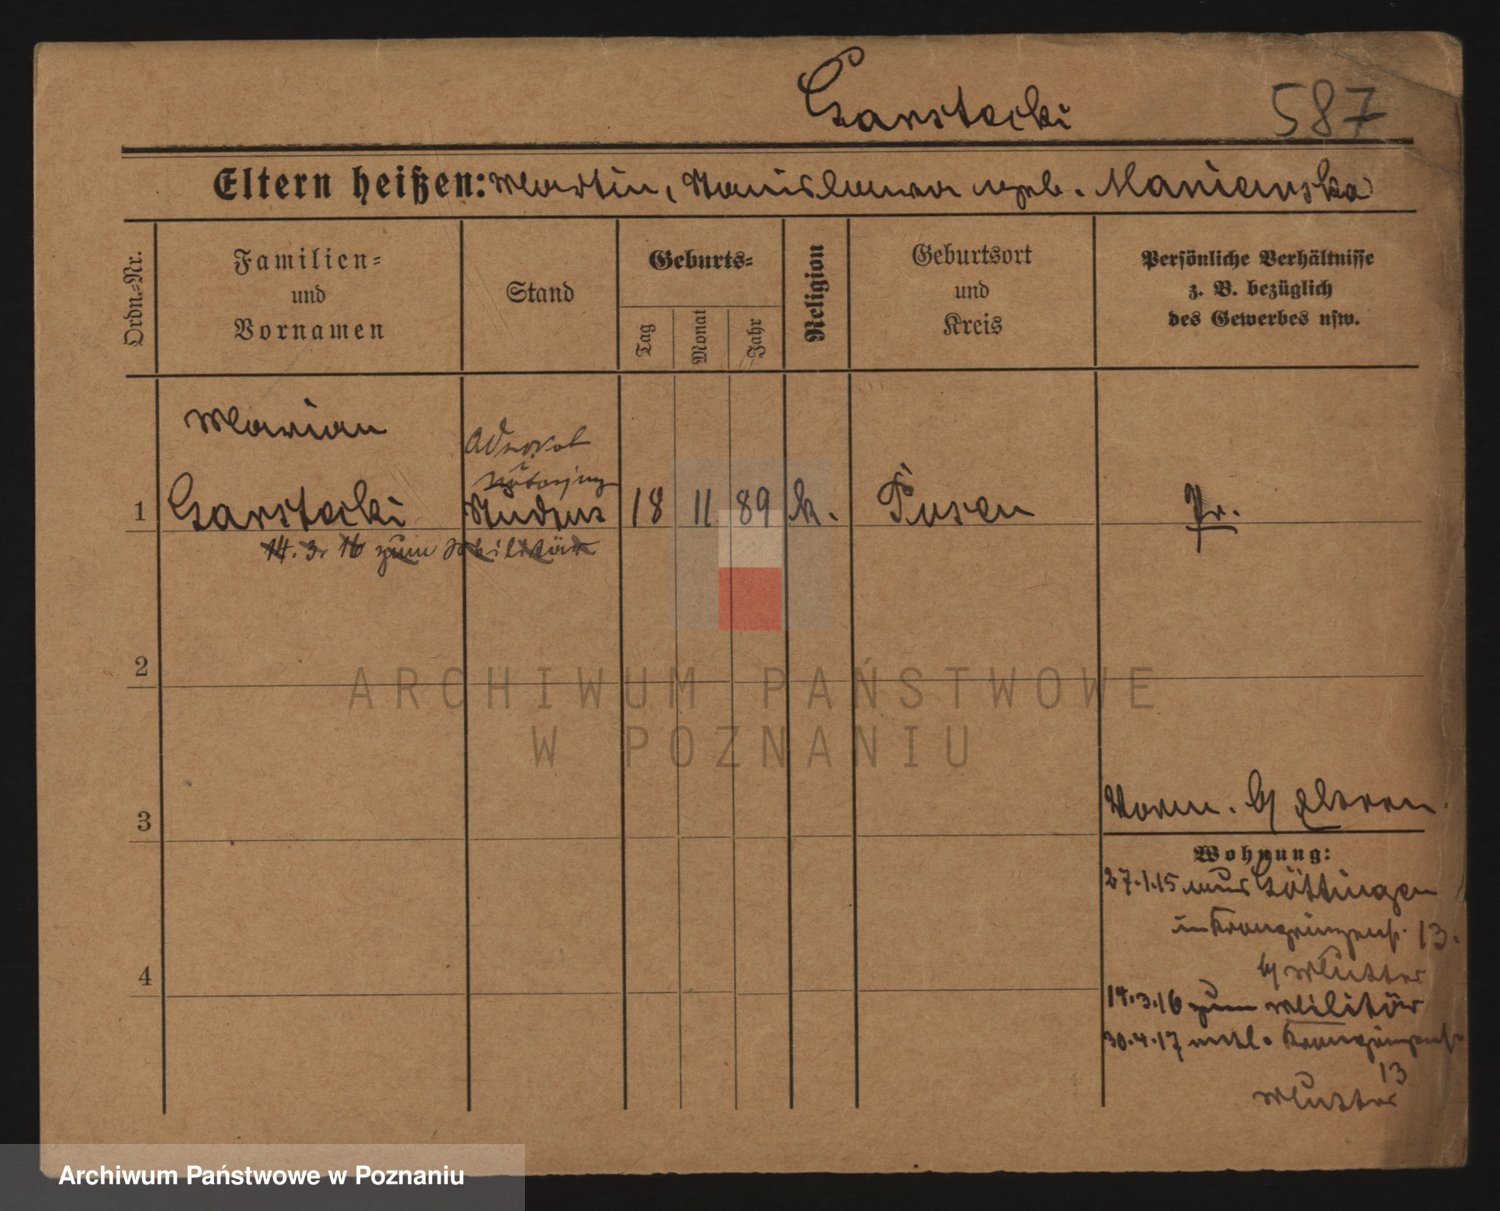 Garstecki 587
Eltern heißen: Martin, Stanislawa geb. Maniewska
Ordn.-Nr.
Familien- und Vornamen
Stand
Geburts-
Tag
Monat
Jahr
Religion
Geburtsort und Kreis
Persönliche Verhältnisse
z. B. bezüglich
des Gewerbes usw.
Marian
Advokat
1 Garstecki Studens 18 11 89 k. Posen Pr.
14. 3. 16 zum Militär
2
3
4
Vorm. b/ Eltern.
Wohnung:
27.1.15 aus Göttingen
in Kronprinzenst. 13.
b/ Mutter
14.3.16 zum Militär
30.4.17 entl. Kronprinzenst.
13
Mutter
ARCHIWUM PAŃSTWOWE
W POZNANIU
Archiwum Państwowe w Poznaniu